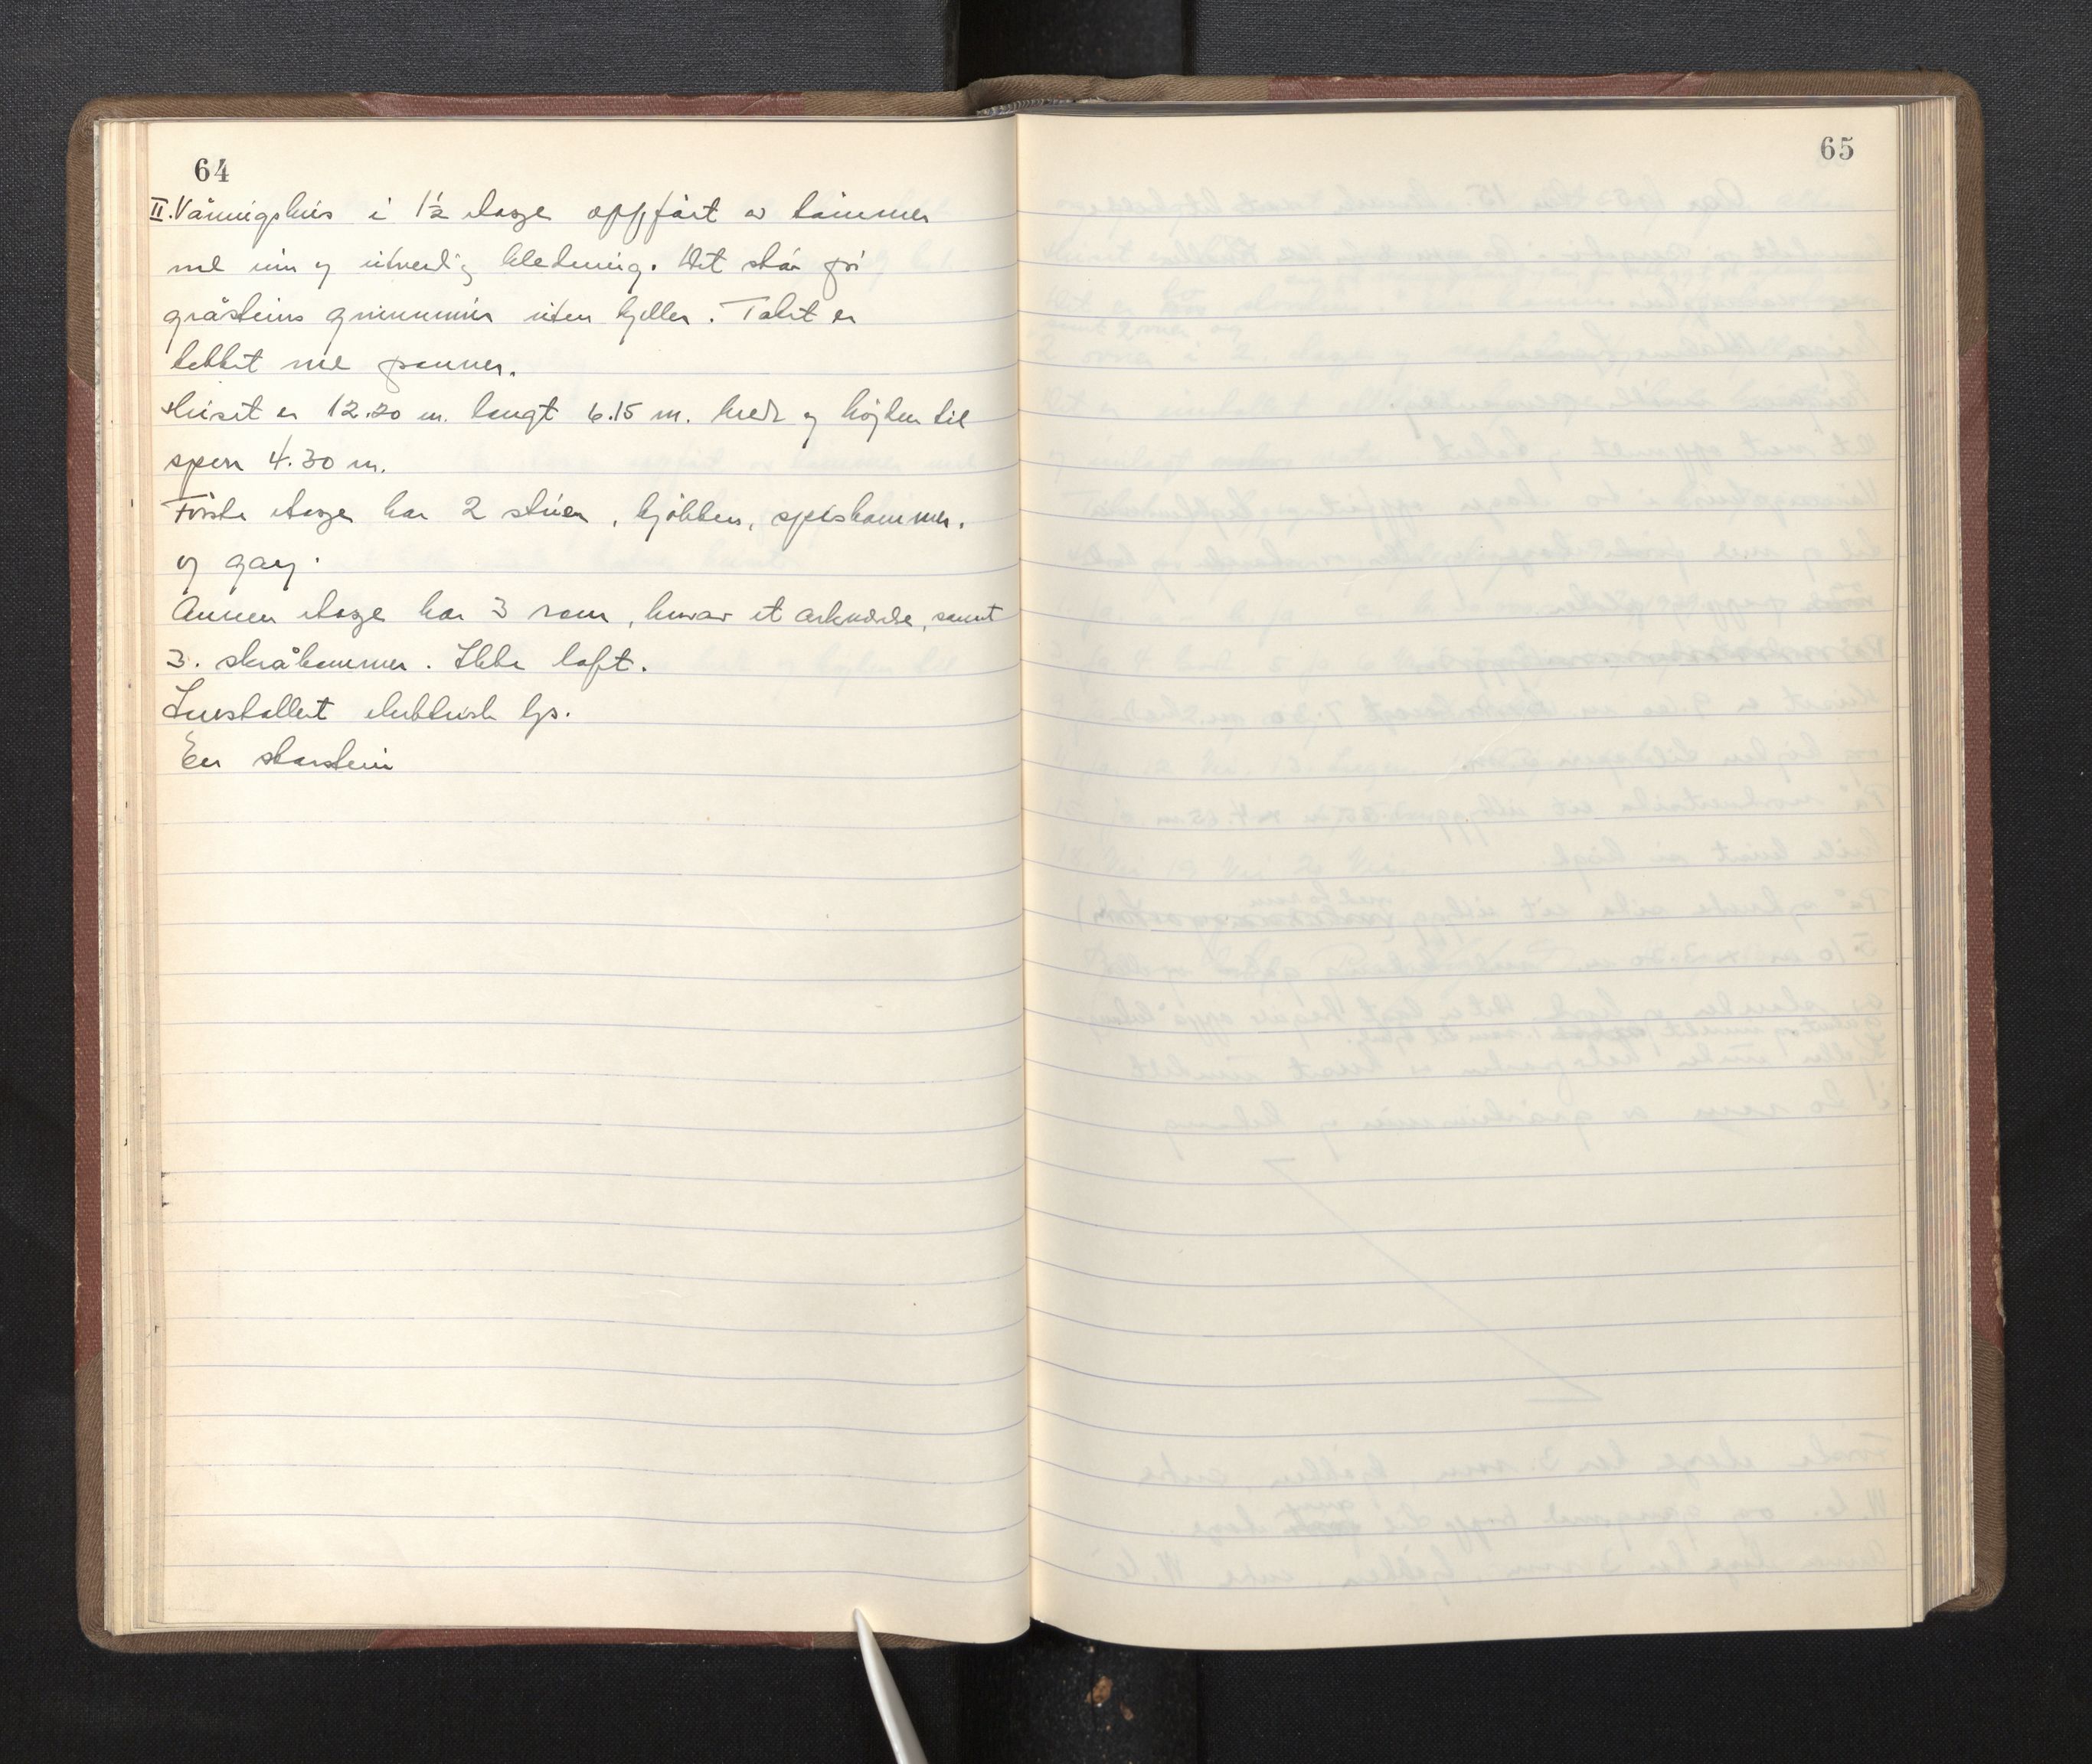 64
II. Våningshus i 1½ etasje oppført av tømmer
me inn og utvendig kledning. Det står på
gråsteins grunnmur uten kjeller. Taket er
tekket me panner.
Huset er 12.20 m. langt 6.15 m. bredt og højden til
sperr 4.30 m.
Første etasje har 2 stuer, kjøkken, spiskammer.
og gang.
Annen etasje har 3 rom, hvorav et arkværelse, samt
3. skråkammer. Ikke loft.
Innstallert elektrisk lys.
En skorstein
65